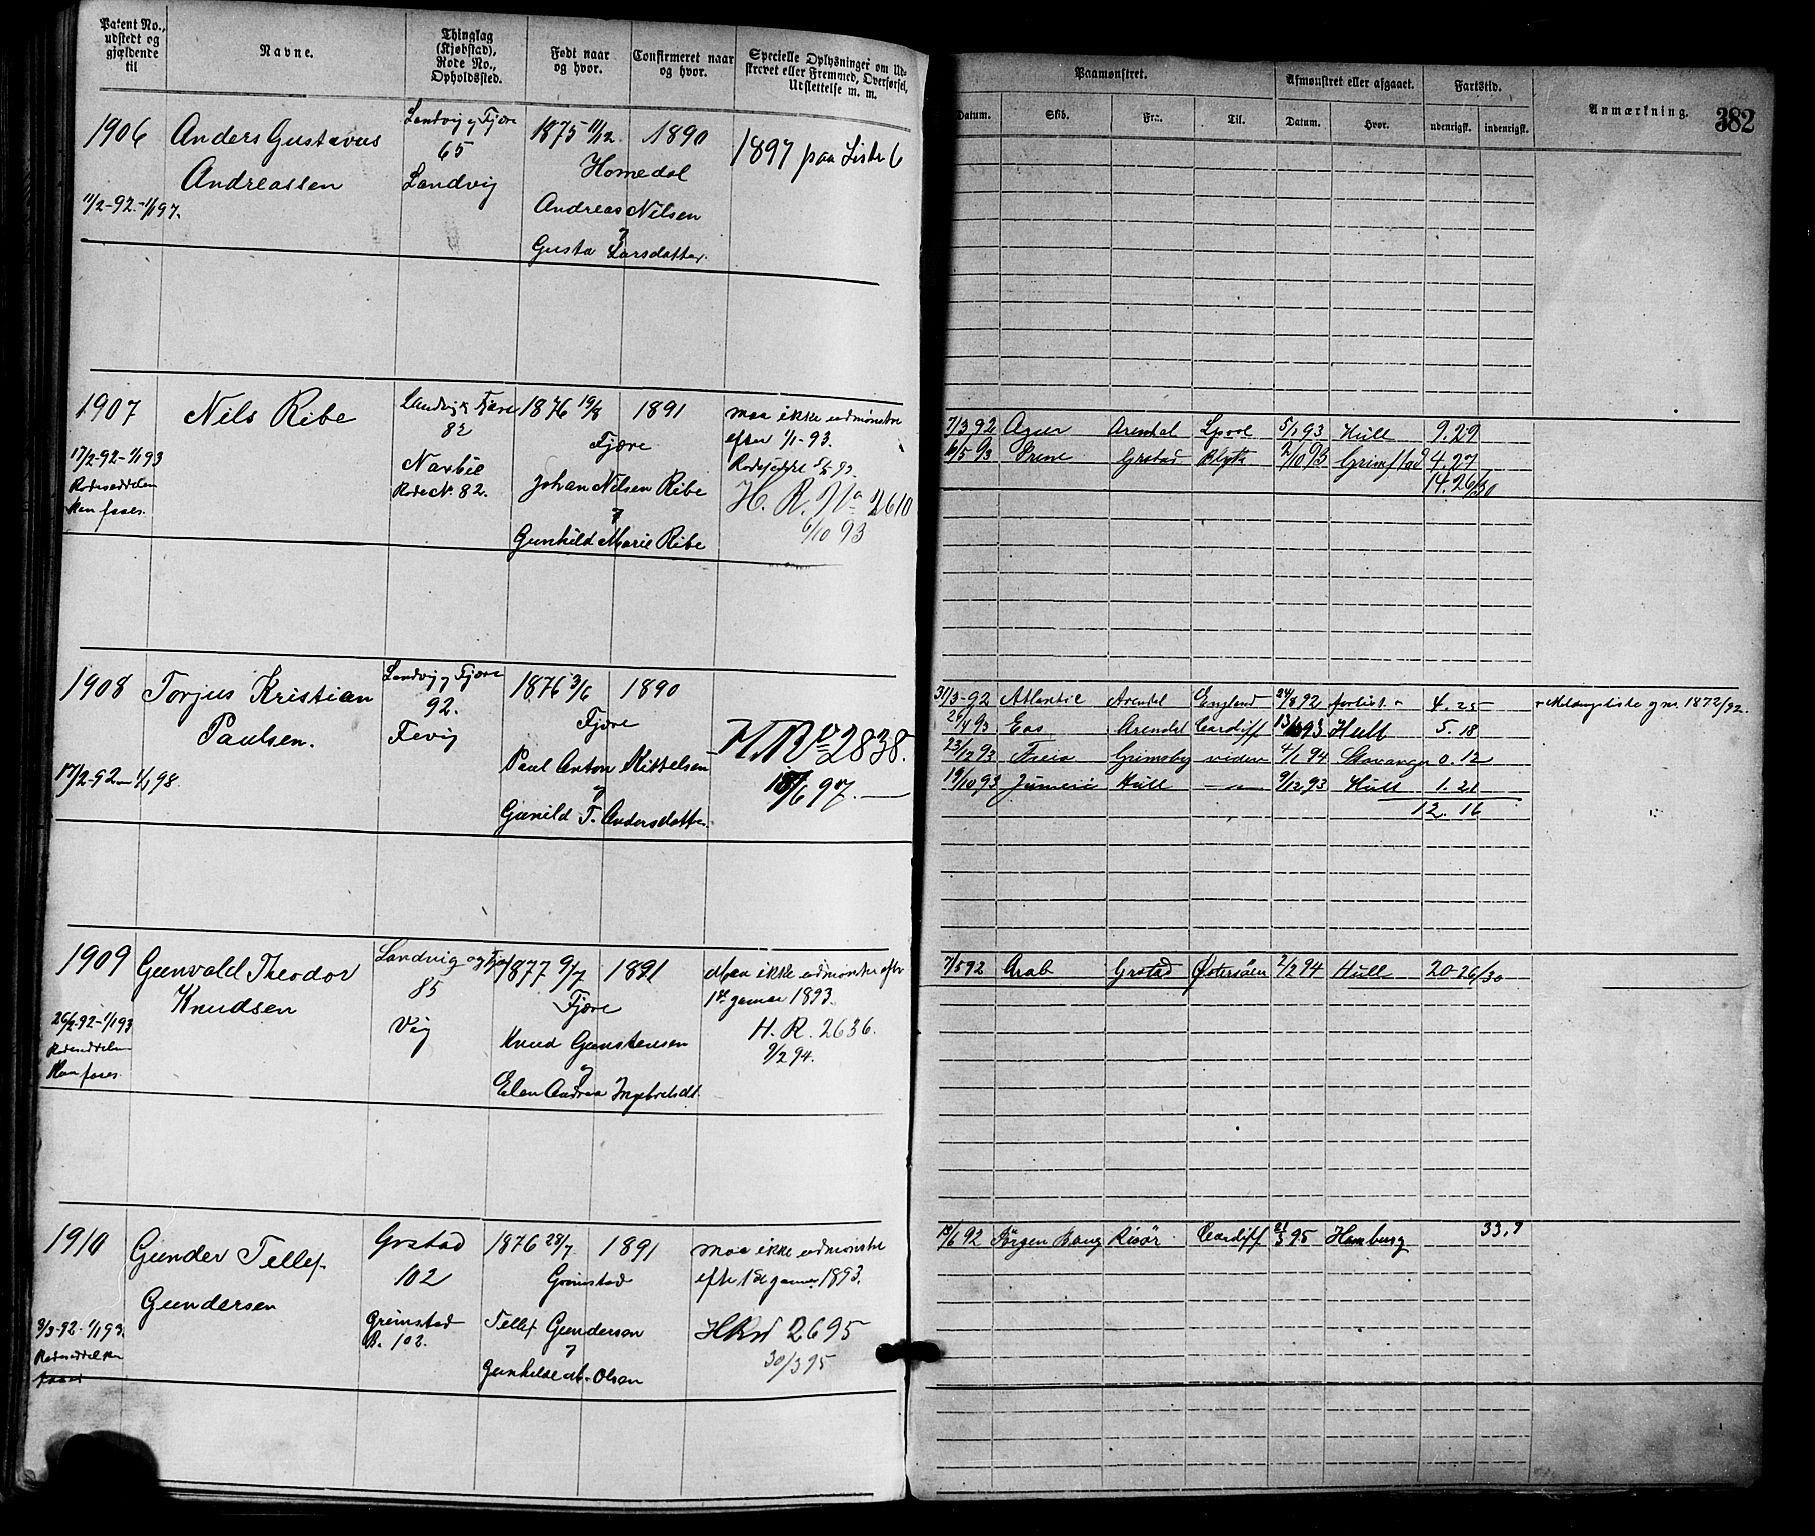 Patent No., udstedt og gjældende til
Navne.
Thinglag (Kjøbstad), Rode No., Opholdssted.
Født naar og hvor.
Confirmeret naar og hvor.
Specielle Oplysninger om Udskrevet eller Fremmed, Overførsel, Udslettelse m. m.
Paamønstret.
Afmønstret eller afgaaet.
Fartstid.
Anmærkning.
382
Datum. Skib. Fra. Til. Datum. Hvor. udenrigsk. indenrigsk.
1906 Anders Gustavus
Andreassen
11/2-92-1/1 97.
Landvig og Fjære
65
Landvig
1875 11/12. 1890
Homedal
Andreas Nilsen
og
Gusta Larsdatter.
1897 paa Liste 6
1907 Nils Ribe
17/2-92-1/1 93
Rodeseddelen
kan faaes.
Landvig Fjære
82
Narbie
Rode N. 82.
1876 19/8 1891
Fjære
Johan Nilsen Ribe
og
Gunhild Marie Ribe
maa ikke udmønstre
efter 1/1-93.
H. R. No 2610
6/10 93
7/3 92 Agur Arendal Lpool 5/1 93 Hull 9.29
Irene Grstad Blyth 2/10 93 Grimstad 4.27
14.26/30
1908 Torjus Kristian
Paulsen.
17/2-92-1/1 98.
Landvig og Fjære
92.
Fevig
1876 3/6 1890
Fjære
Paul Anton Kittelsen
og
Gunild T. Andersdatter.
2838.
6 97.
31/3-92 Atlantic Arendal England 24/8 92 forlist 4.25
Meldingsliste gm. 1872/92.
Eos Arendal Cardiff Hull 5.18
23/12 93 Freia Grimsby viden 4/1 94 Stavanger 0.12
19/10 93 Hull 9/12 93 Hull 1.21
12.16
1909 Gunvald Theodor
Knudsen
26/2-92-1/1 93
Rodeseddelen
kan faaes.
Landvig og Fjære
85
Vig
1877 9/7 1891
Fjære
Knud Gunstensen
og
Elen Andrea Ingebretsdt.
Maa ikke udmønstre efter
1ste januar 1893.
H. R. 2636.
9/2 94.
7/5 92 Arab Grstad Østersöen 2/2 94 Hull 20-26/30
1910 Gunder Tellef
Gundersen
3/3-92-1/1 93.
Rodeseddel kan
faaes
Grstad
102
Grimstad
B. 102.
1876 28/7 1891
Grimstad
Tellef Gunderson
og
Gunhilde M. Olsen
maa ikke udmønstre
efter 1st januar 1893.
2695
30/3 95
Jörgen Bang Risör Cardiff 21/3 95 Hamburg 33,9